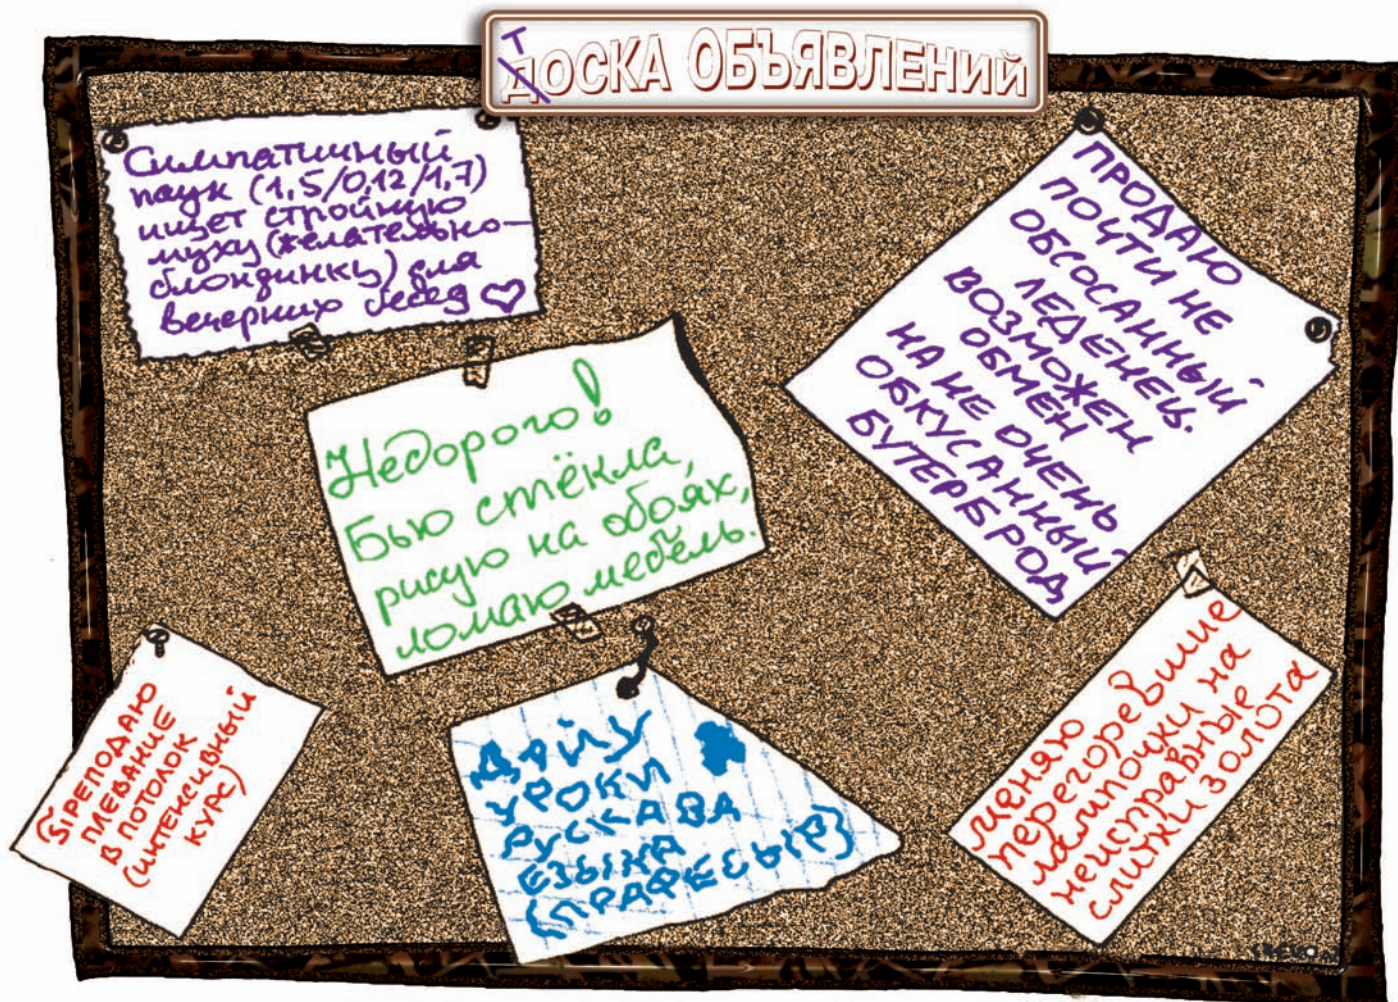 ТДОСКА ОБЪЯВЛЕНИЙ
Симпатичный
паук (1,5/0,12/1,7)
ищет стройную
муху (желательно —
блондинку) для
вечерних бесед
ПРОДАЮ
ПОЧТИ НЕ
ОБСОСАННЫЙ
ЛЕДЕНЕЦ.
ВОЗМОЖЕН
ОБМЕН
НА НЕ ОЧЕНЬ
ОБКУСАННЫЙ
БУТЕРБРОД
Недорого!
Бью стёкла,
рисую на обоях,
ломаю мебель.
ПРЕПОДАЮ
ПЛЕВАНИЕ
В ПОТОЛОК
(ИНТЕНСИВНЫЙ
КУРС)
ДАЙУ
УРОКИ
РУСКАВА
ЕЗЫКА
(ПРАФЕСЫР)
меняю
перегоревшие
лампочки на
неисправные
слитки золота